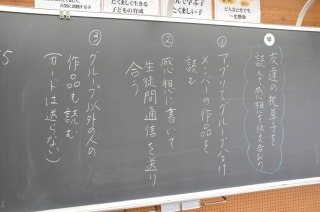 たくましく生きる
子どもの育成
学ぶ子
こくましい子
どんなときでも
一生懸命
め
友達の枕草子を
読んで感想を伝え合おう
①アプリでグループ分け
メンバーの作品を
読む
②感想に書いて
生徒間通信を送り
合う
③グループ以外の人の
作品も読む
(カードは送らない)